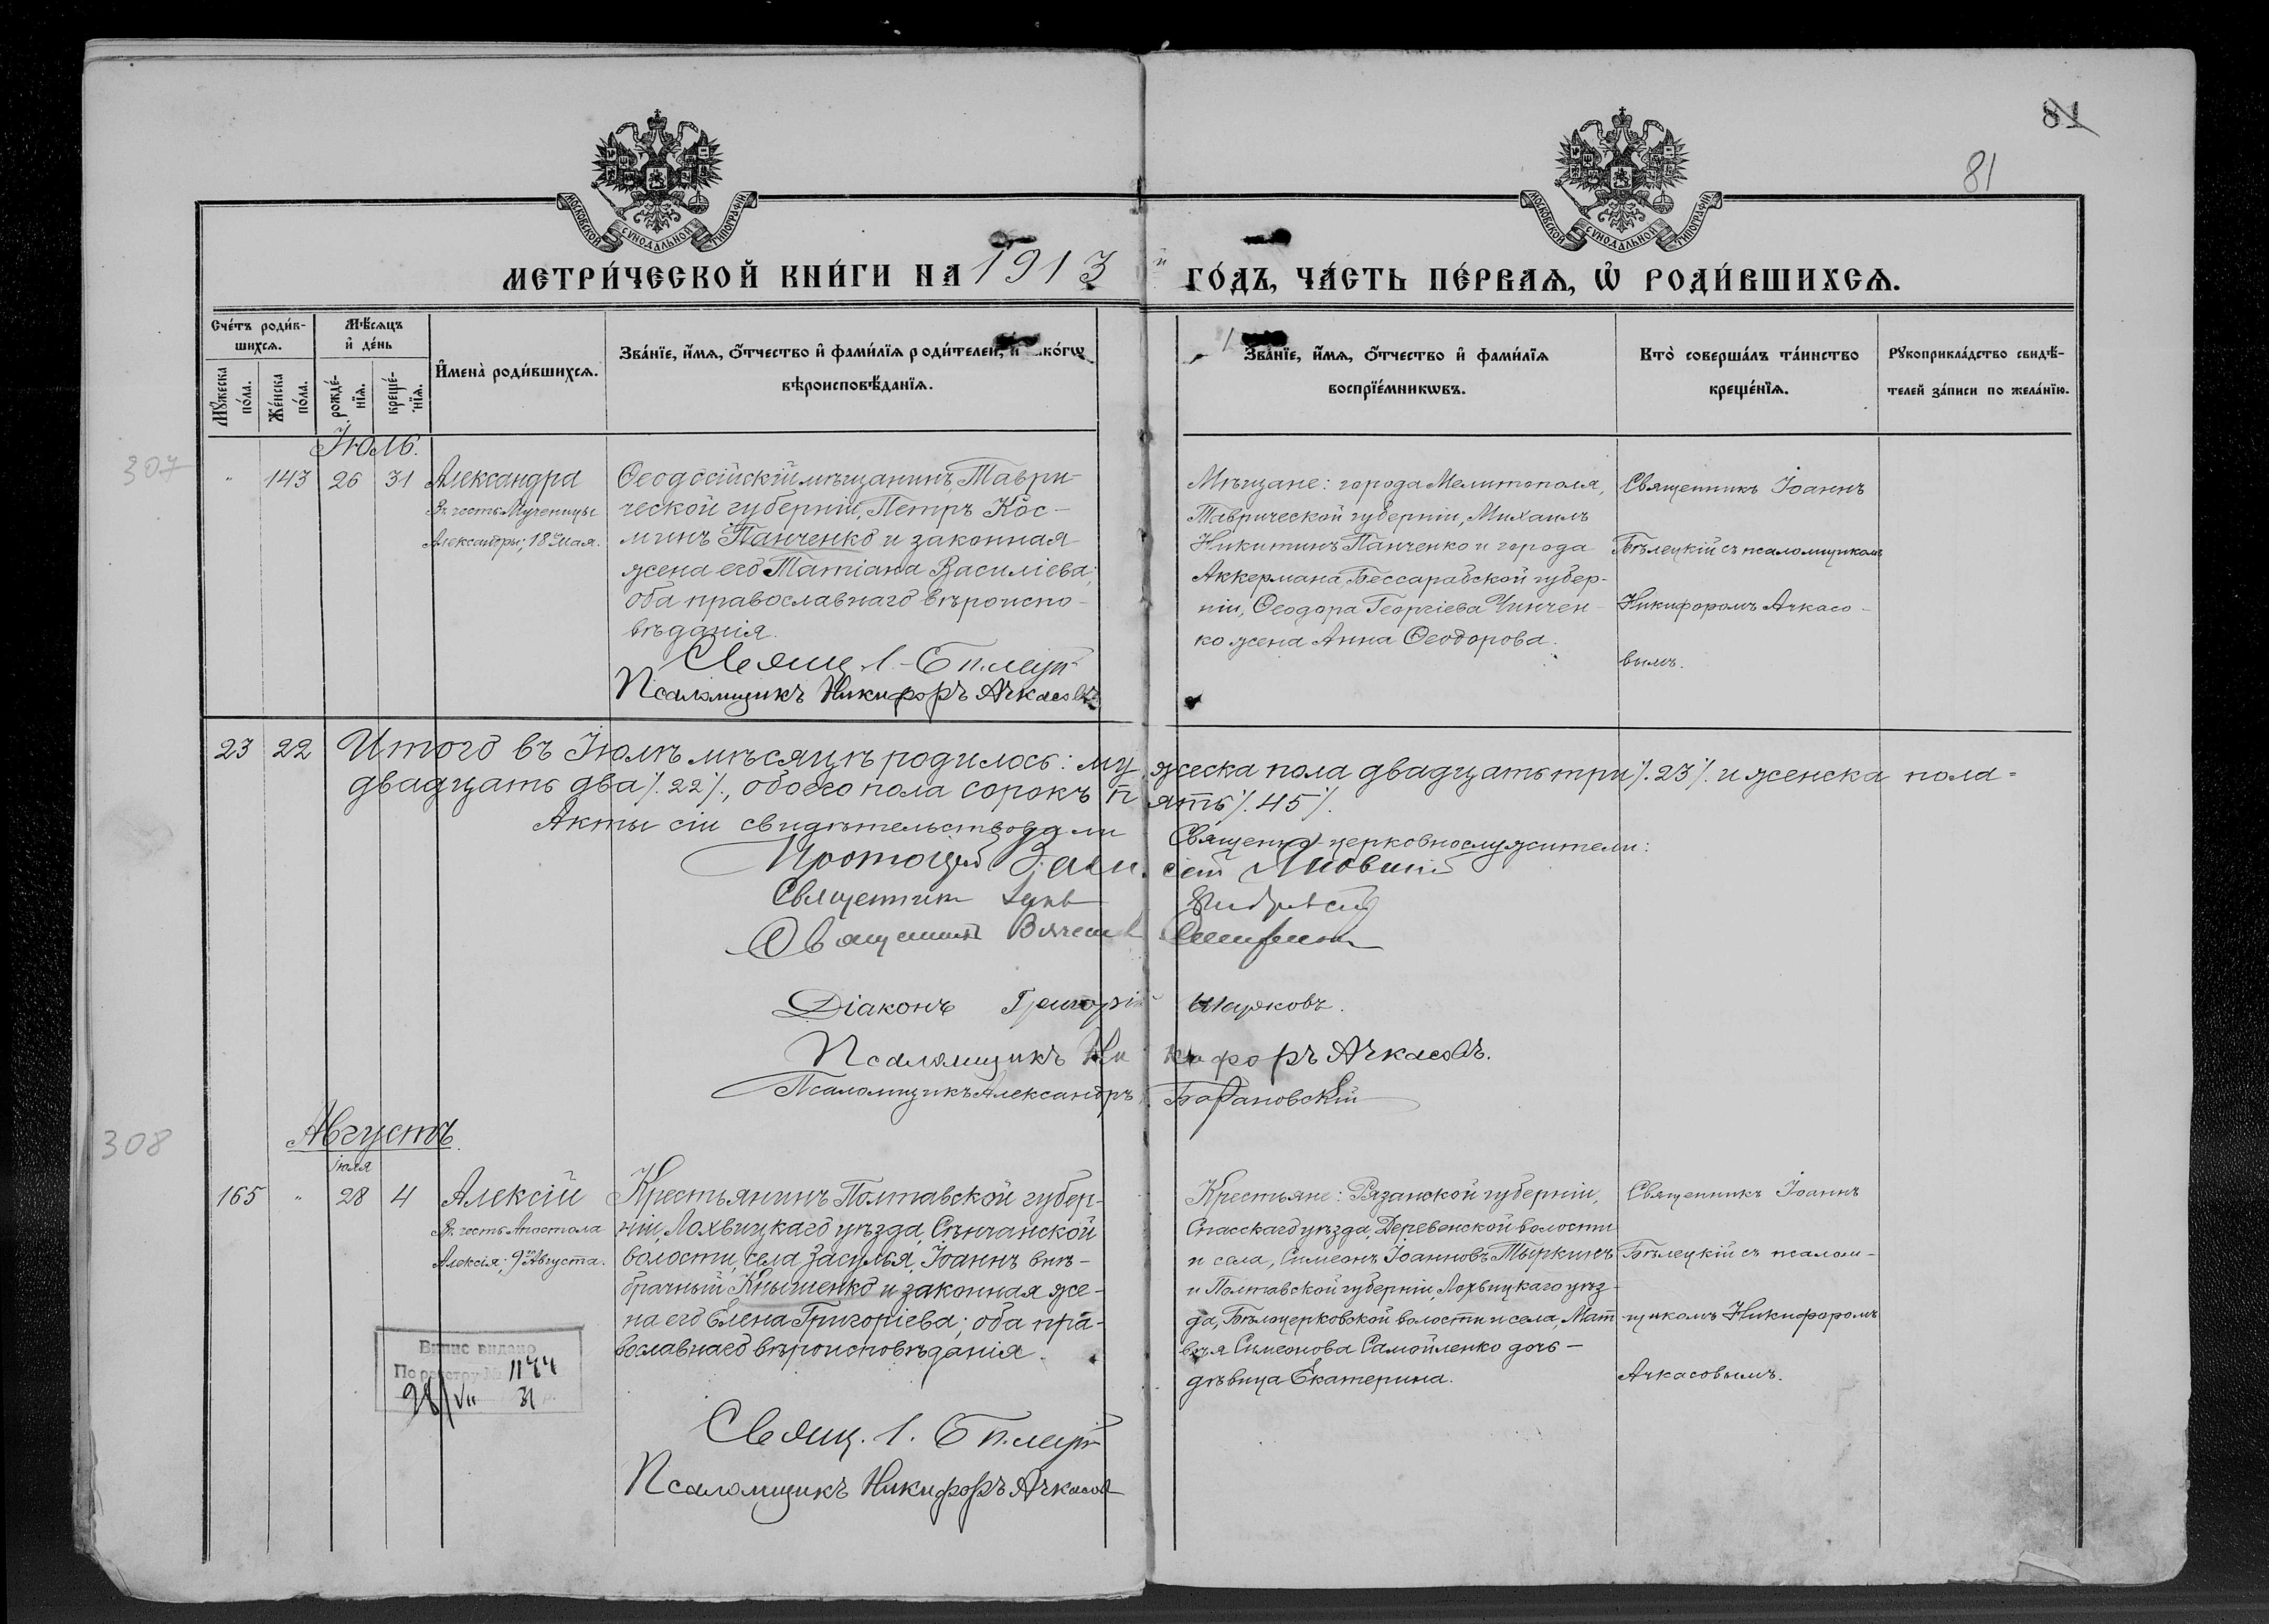 81
81
МОСКОВСКОЙ СУНОДАЛЬНОЙ ТИПОГРАФІИ
МОСКОВСКОЙ СУНОДАЛЬНОЙ ТИПОГРАФІИ
МЕТРИ́ЧЕСКОЙ КНИ́ГИ НА 1913 й ГО́ДЪ, ЧА́СТЬ ПЕ́РВАѦ, Ѽ РОДИ́ВШИХСѦ.
Сче́тъ роди́в-
шихсѧ.
Мꙋ́жеска по́ла.
Же́нска по́ла.
Мѣ́сѧцъ
и҆ де́нь
рожде́-
нїѧ.
креще́-
нїѧ.
И҆мена̀ роди́вшихсѧ.
Зва́нїе, и҆́мѧ, ѻ҆́тчество и҆ фами́лїѧ роди́телей, и҆ како́гѡ
вѣроисповѣ́данїѧ.
Зва́нїе, и҆́мѧ, ѻ҆́тчество и҆ фами́лїѧ
воспрїе́мникѡвъ.
Кто̀ соверша́лъ та́инство
креще́нїѧ.
Рꙋкоприкла́дство свидѣ́-
телей за́писи по жела́нїю.
Іюль.
307
" 143 26 31
Александра
Въ честь Мученицы
Александры, 18го Мая.
Ѳеодосійскій мѣщанинъ, Таври-
ческой губерніи, Петръ Кос-
минъ Панченко и законная
жена его Татіана Василіева;
оба православнаго вѣроиспо-
вѣданія.
Свящ. І. Бѣлецкій
Псаломщикъ Никифоръ Ачкасовъ
Мѣщане: города Мелитополя,
Таврической губерніи, Михаилъ
Никитинъ Панченко и города
Аккермана, Бессарабской губер-
ніи, Ѳеодора Георгіева Чинчен-
ко жена Анна Ѳеодорова.
Священникъ Іоаннъ
Бѣлецкій съ псаломщикомъ
Никифоромъ Ачкасо-
вымъ.
23 22 Итого въ Іюлѣ мѣсяцѣ родилось: мужеска пола двадцать три /.23/. и женска пола =
двадцать два /.22/., обоего пола сорокъ пять /.45/.
Акты сіи свидѣтельствовали Священно-церковнослужители:
Протоіерей
Священникъ
Священникъ
Діаконъ Григорій Шарковъ.
Псаломщикъ Никифоръ Ачкасовъ.
Псаломщикъ Александръ Барановскій
Августъ
308
Іюля
165 " 28 4
Алексій
Въ честь Апостола
Алексія, 9го Августа.
Крестьянинъ Полтавской губер-
ніи, Лохвицкаго уѣзда, Сѣнчанской
волости, села Засулья, Іоаннъ внѣ-
брачный Кнышенко и законная же-
на его Елена Григоріева; оба пра-
вославнаго вѣроисповѣданія.
Свящ. І. Бѣлецкій
Псаломщикъ Никифоръ Ачкасовъ
Крестьяне: Рязанской губерніи,
Спасскаго уѣзда, Деревенской волости
и села, Симеонъ Іоанновъ Тыркинъ
и Полтавской губерніи, Лохвицкаго уѣз-
да, Бѣлоцерковской волости и села, Мат-
вѣя Симеонова Самойленко дочь -
дѣвица Екатерина.
Священникъ Іоаннъ
Бѣлецкій съ псалом-
щикомъ Никифоромъ
Ачкасовымъ.
Випис видано
По реєстру № 1144
28/VII 31